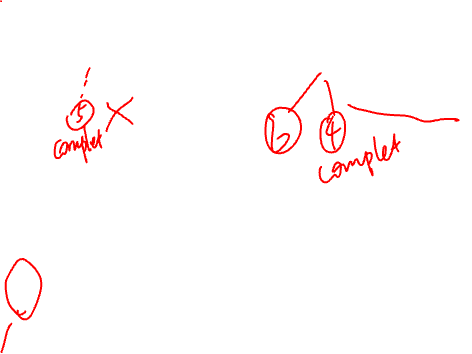 5
complet
6 4
complet